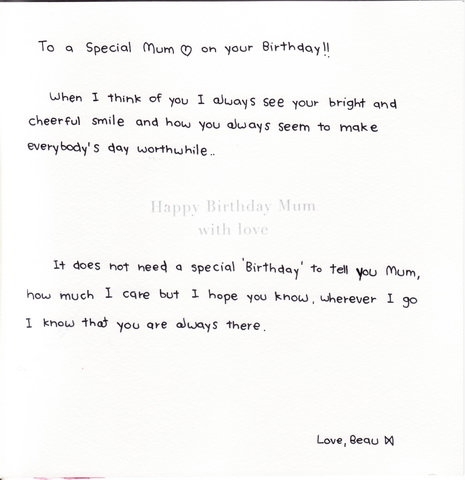 To a Special Mum ♡ on your Birthday!!
When I think of you I always see your bright and
cheerful smile and how you always seem to make
everybody's day worthwhile..
Happy Birthday Mum
with love
It does not need a special 'Birthday' to tell you Mum,
how much I care but I hope you know, wherever I go
I know that you are always there.
Love, Beau ⋈